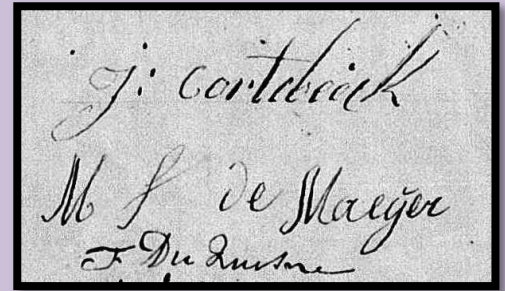 J: Cortebeeck
M J de Maeÿer
F Du Quesne